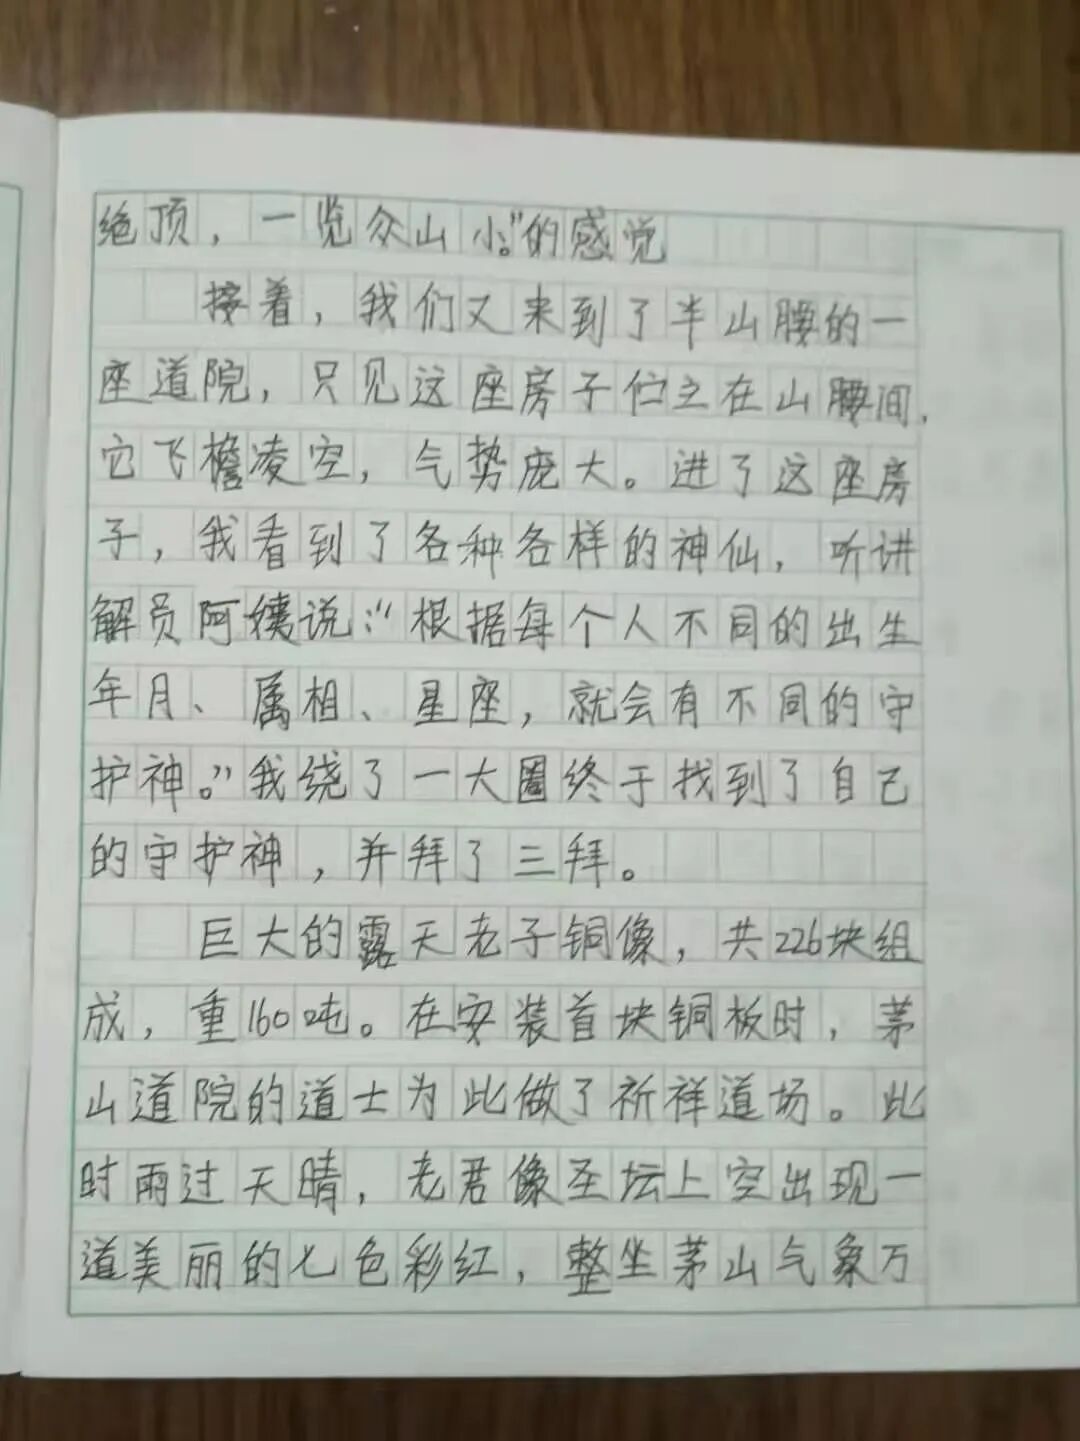 绝顶，一览众山小。”的感觉
接着，我们又来到了半山腰的一
座道院，只见这座房子伫立在山腰间，
它飞檐凌空，气势庞大。进了这座房
子，我看到了各种各样的神仙，听讲
解员阿姨说：“根据每个人不同的出生
年月、属相、星座，就会有不同的守
护神。”我绕了一大圈终于找到了自己
的守护神，并拜了三拜。
巨大的露天老子铜像，共226块组
成，重160吨。在安装首块铜板时，茅
山道院的道士为此做了祈祥道场。此
时雨过天晴，老君像圣坛上空出现一
道美丽的七色彩红，整坐茅山气象万